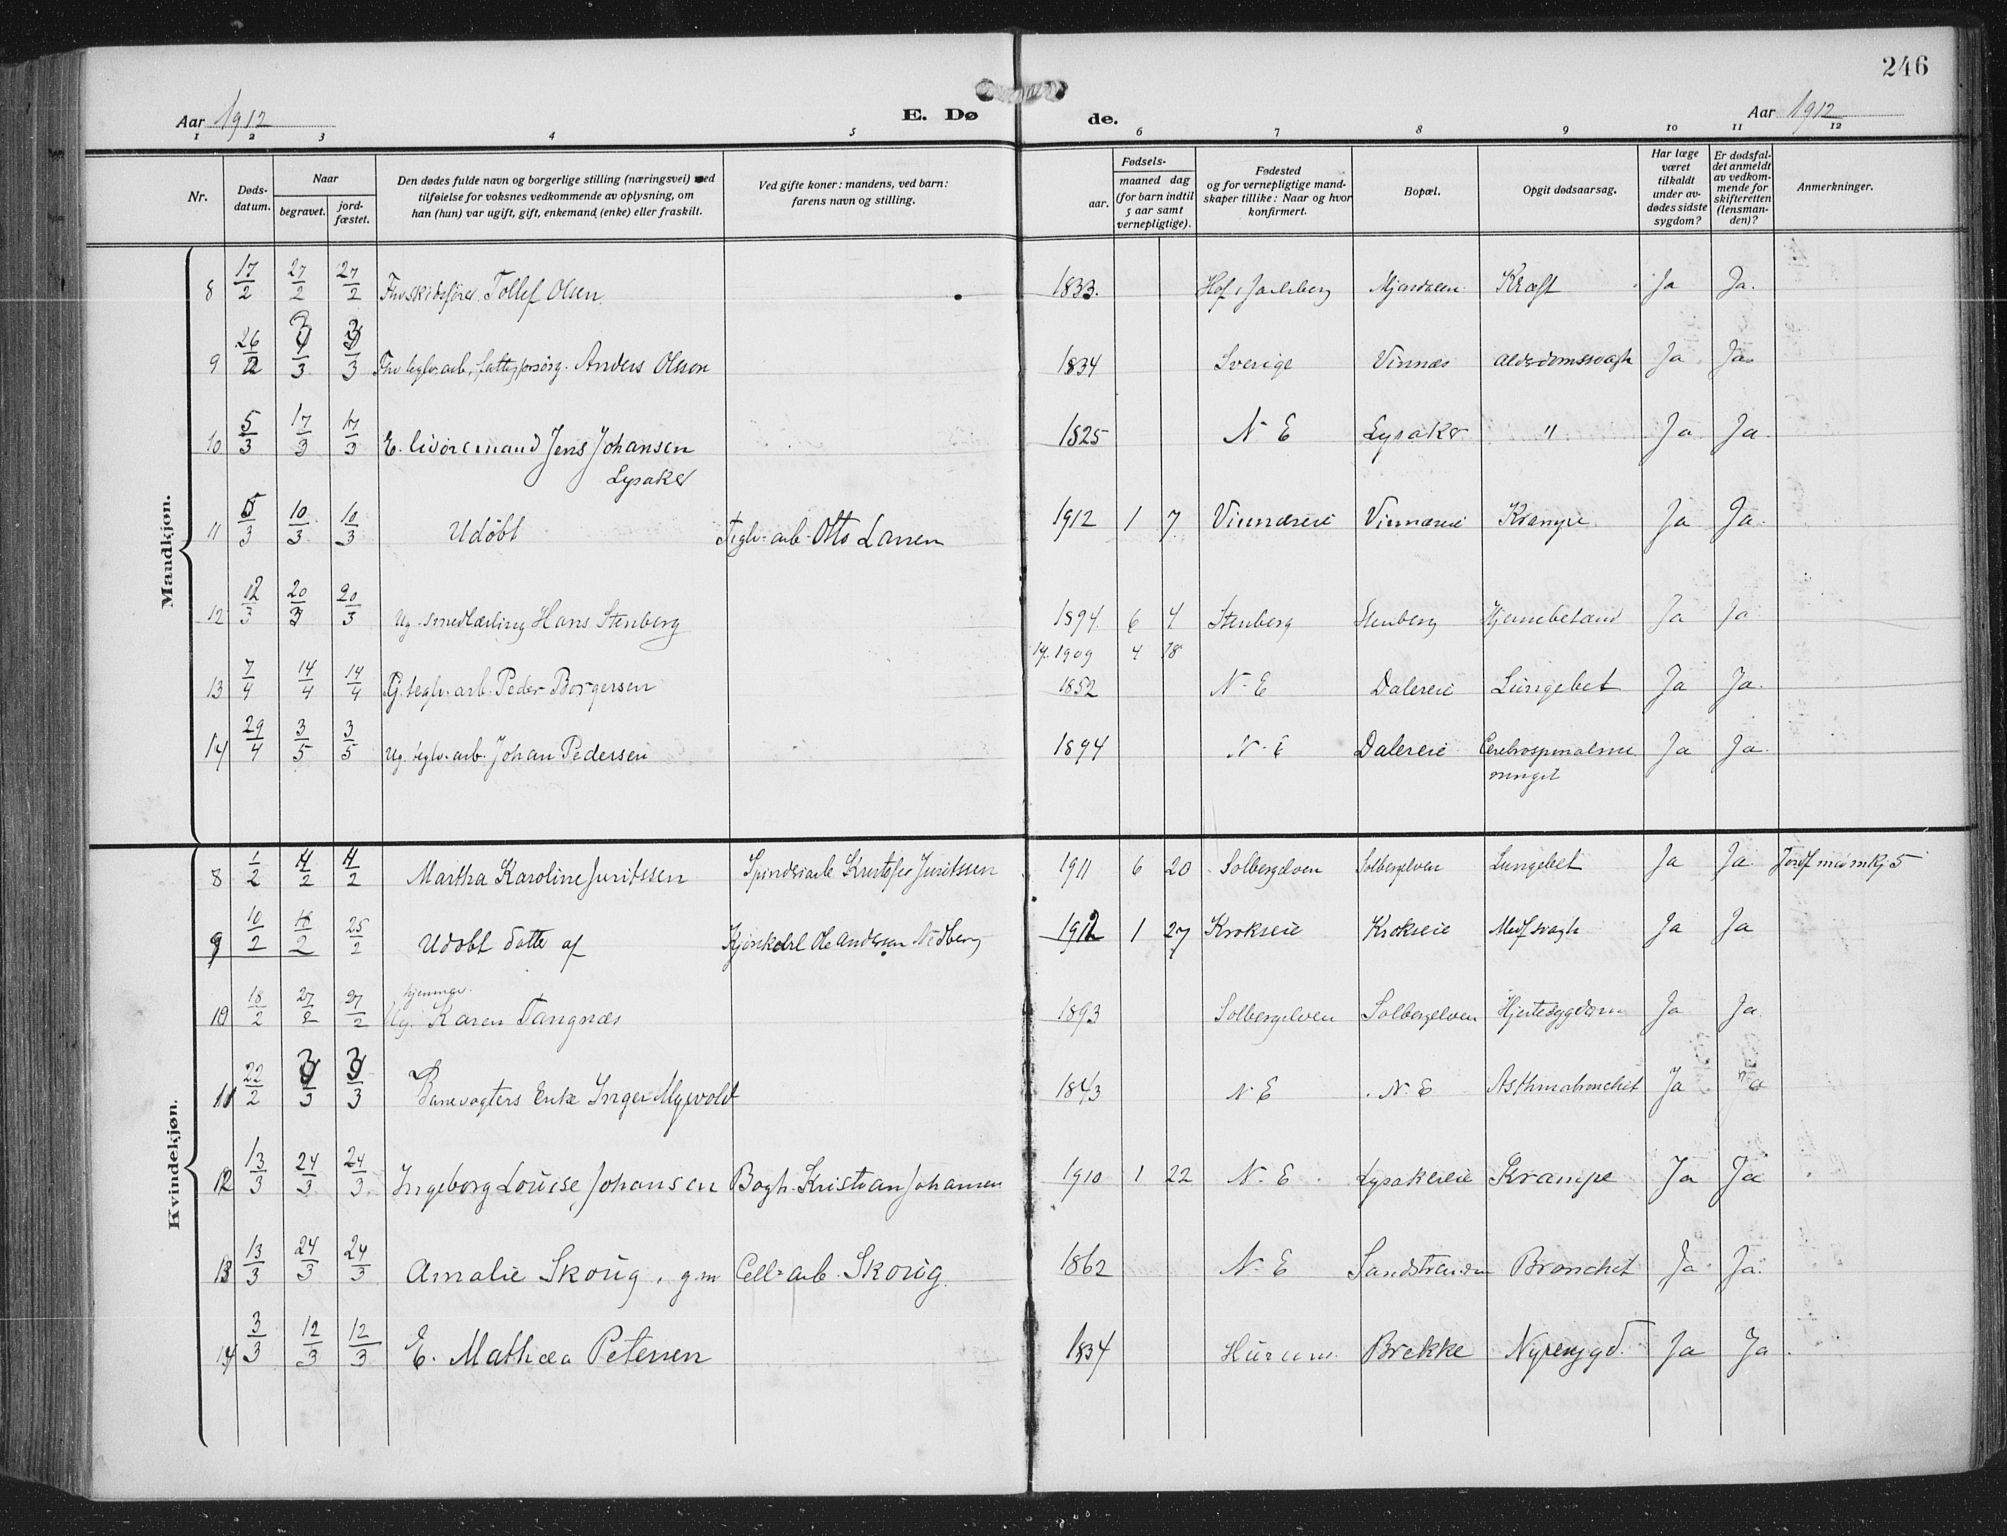 246
Aar 1912 E. Døde. Aar 1912
1 2 3 4 5 6 7 8 9 10 11 12
Nr. Døds-datum. Naar begravet. jord-fæstet. Den dødes fulde navn og borgerlige stilling (næringsvei) med tilføielse for voksnes vedkommende av oplysning, om han (hun) var ugift, gift, enkemand (enke) eller fraskilt. Ved gifte koner: mandens, ved barn: farens navn og stilling. Fødsels- aar. maaned dag (for barn indtil 5 aar samt vernepligtige). Fødested og for vernepligtige mand-skaper tillike: Naar og hvor konfirmert. Bopæl. Opgit dødsaarsag. Har læge været tilkaldt under av-dødes sidste sygdom? Er dødsfal-det anmeldt av vedkom-mende for skifteretten (lensman-den)? Anmerkninger.
Mandkjøn.
8 17/2 27/2 27/2 Tollef Olsen 1833. Hof, Jarlsberg Mjøndalen Kræft Ja Ja.
9 26/2 3/3 3/3 Fhv. teglv. arb., fattigforsørg. Anders Olsen 1834 Sverige Vinnæs Alderdomssvagh Ja Ja.
10 5/3 17/3 17/3 E. livøremand Jens Johansen 1825 N E Lysaker " Ja Ja.
Lysaker
11 5/3 10/3 10/3 Udøbt Teglv. arb. Otto Larsen 1912 1 7 Vinnæseie Vinnæseie Krampe Ja Ja.
12 12/3 20/3 20/3 Ug. smedlærling Hans Stenberg 1894 6 4 Stenberg Stenberg Hjernebetænd Ja Ja
1909 4 18
13 7/4 14/4 14/4 G. teglv. arb. Peder Borgersen 1852 N. E Dalereie Lungebet Ja Ja.
14 29/4 3/5 3/5 Ug. teglv. arb. Johan Pedersen 1894 N. E Dalereie Cerebrospinalme Ja Ja.
ninget
Kvindekjøn.
8 1/2 11/2 11/2 Martha Karoline Juritssen Spinderiarb Kristofer Juritssen 1911 6 20 Solbergelven Solbergelven Lungebet Ja Ja
9 10/2 18/2 25/2 Udøbt datter af Ole Andersen Nedberg 1912 1 27 Krokseie Krokseie Medf svagh Ja Ja
hjemmev.
10 18/2 27/2 27/2 Ug. Karen Tangnæs 1893 Solbergelven Solbergelven Hjertesygdom Ja Ja.
11 22/2 3/3 3/3 Banevogters Enke Inger Myrvold 1843 N. E N. E Asthmabronchit Ja Ja
12 13/3 24/3 24/3 Ingeborg Louise Johansen Bagh. Kristian Johansen 1910 1 22 N. E Lysakereie Krampe Ja Ja
13 13/3 24/3 24/3 Amalie Skoug, g.m Cell. arb. Skoug. 1862 N. E Sandstranden Bronchit Ja Ja.
14 3/3 12/3 12/3 E. Mathea Petersen 1834 Hurum. Brekke Nyresygd. Ja Ja.